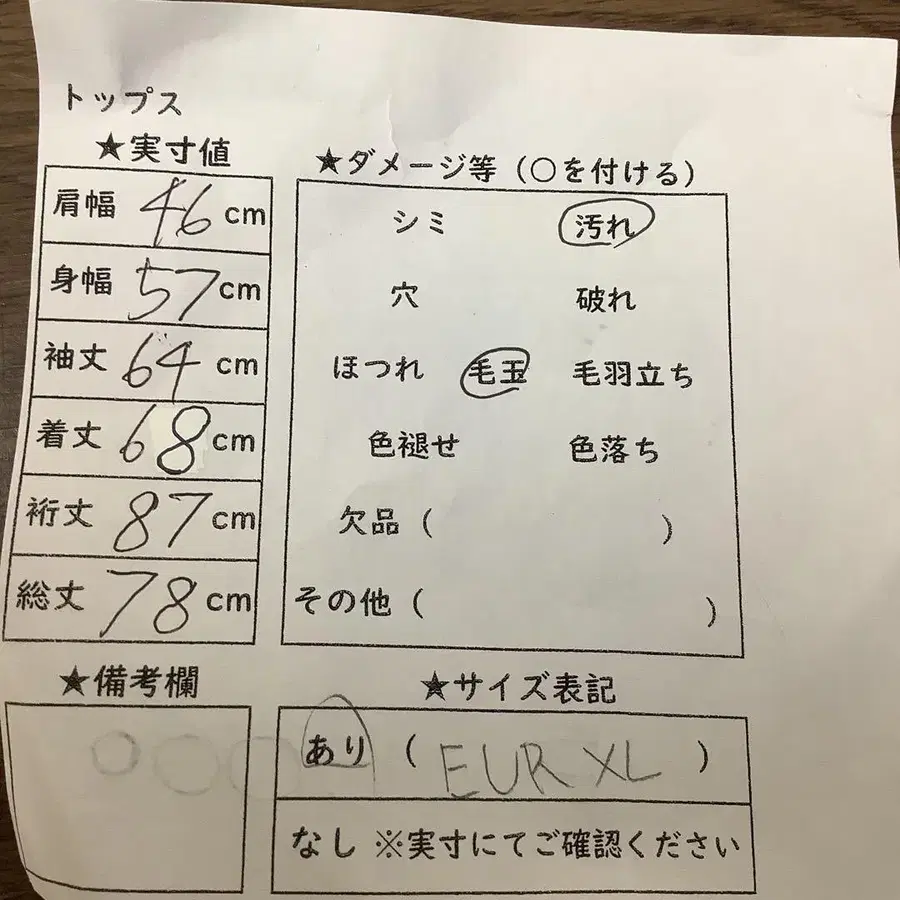 トップス
★実寸値
肩幅 46 cm
身幅 57 cm
袖丈 64 cm
着丈 68 cm
裄丈 87 cm
総丈 78 cm
★ダメージ等(○を付ける)
シミ 汚れ
穴 破れ
ほつれ 毛玉 毛羽立ち
色褪せ 色落ち
欠品( )
その他( )
★備考欄
★サイズ表記
あり (EUR XL)
なし ※実寸にてご確認ください